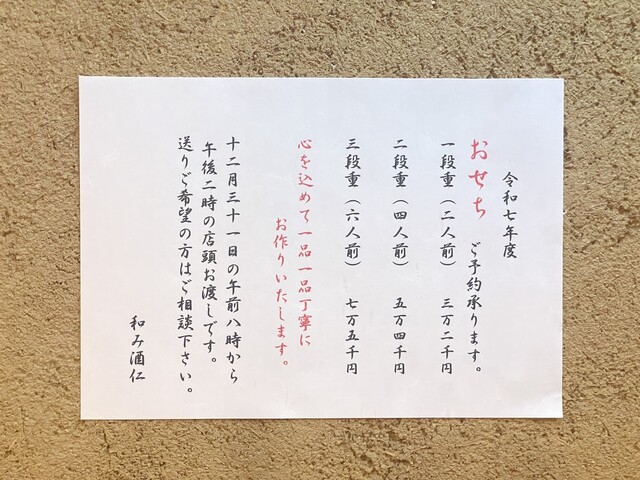 令和七年度
おせち ご予約承ります。
一段重（二人前） 三万二千円
二段重（四人前） 五万四千円
三段重（六人前） 七万五千円
心を込めて一品一品丁寧に
お作りいたします。
十二月三十一日の午前八時から
午後二時の店頭お渡しです。
送りご希望の方はご相談下さい。
和み酒仁